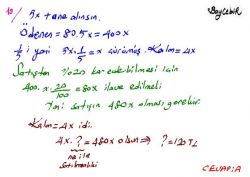 10/ 5x tane alınsın.
Ödenen = 80.5x = 400x
1/5 i yani 5x.1/5 = x çürümüş. Kalan = 4x
Satıştan %20 kar edebilmesi için
400x.20/100 = 80x ilave edilmeli
Yani satışın 480x olması gerekir.
Kalan = 4x idi.
4x.? = 480x olsun ⇒ ? = 120 TL
ne ile
satılmalı
CEVAP: A